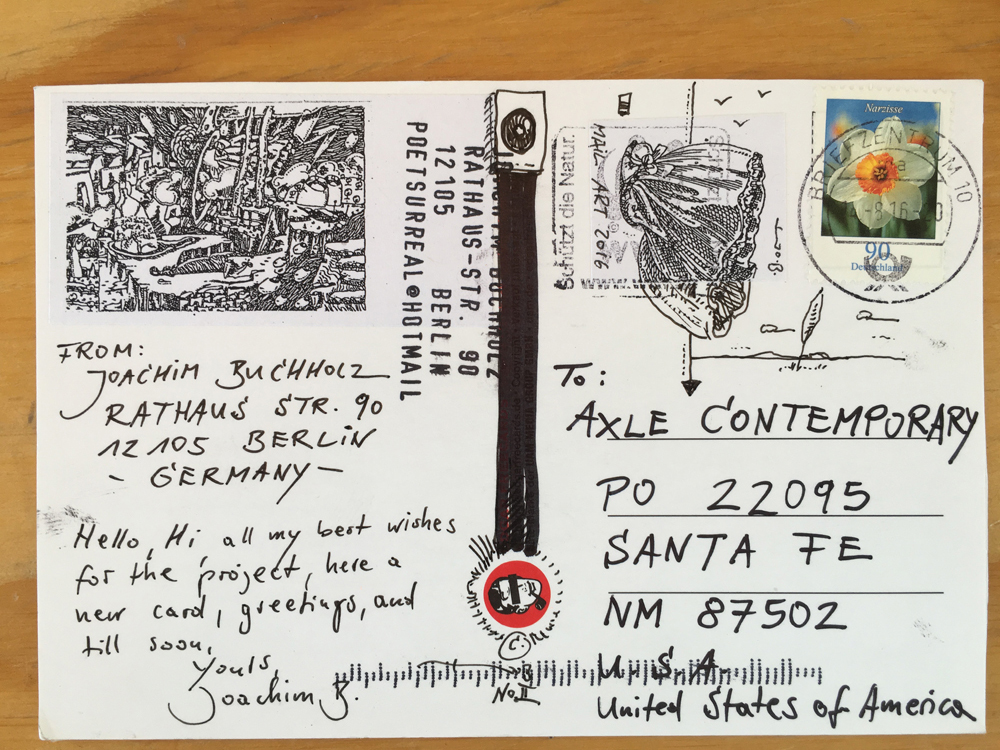 FROM:
JOACHIM BUCHHOLZ
RATHAUS STR. 90
12105 BERLIN
- GERMANY -
Hello, Hi, all my best wishes
for the project, here a
new card, greetings, and
till soon,
Yours,
Joachim B.
JOACHIM BUCHHOLZ
RATHAUS-STR. 90
12105 BERLIN
POETSURREAL@HOTMAIL
Schützt die Natur.
MAIL-ART 2016
www.
Narzisse
90
Deutschland
BRIEFZENTRUM 10
To:
AXLE CONTEMPORARY
PO 22095
SANTA FE
NM 87502
U.S.A.
United States of America
C.
No. II